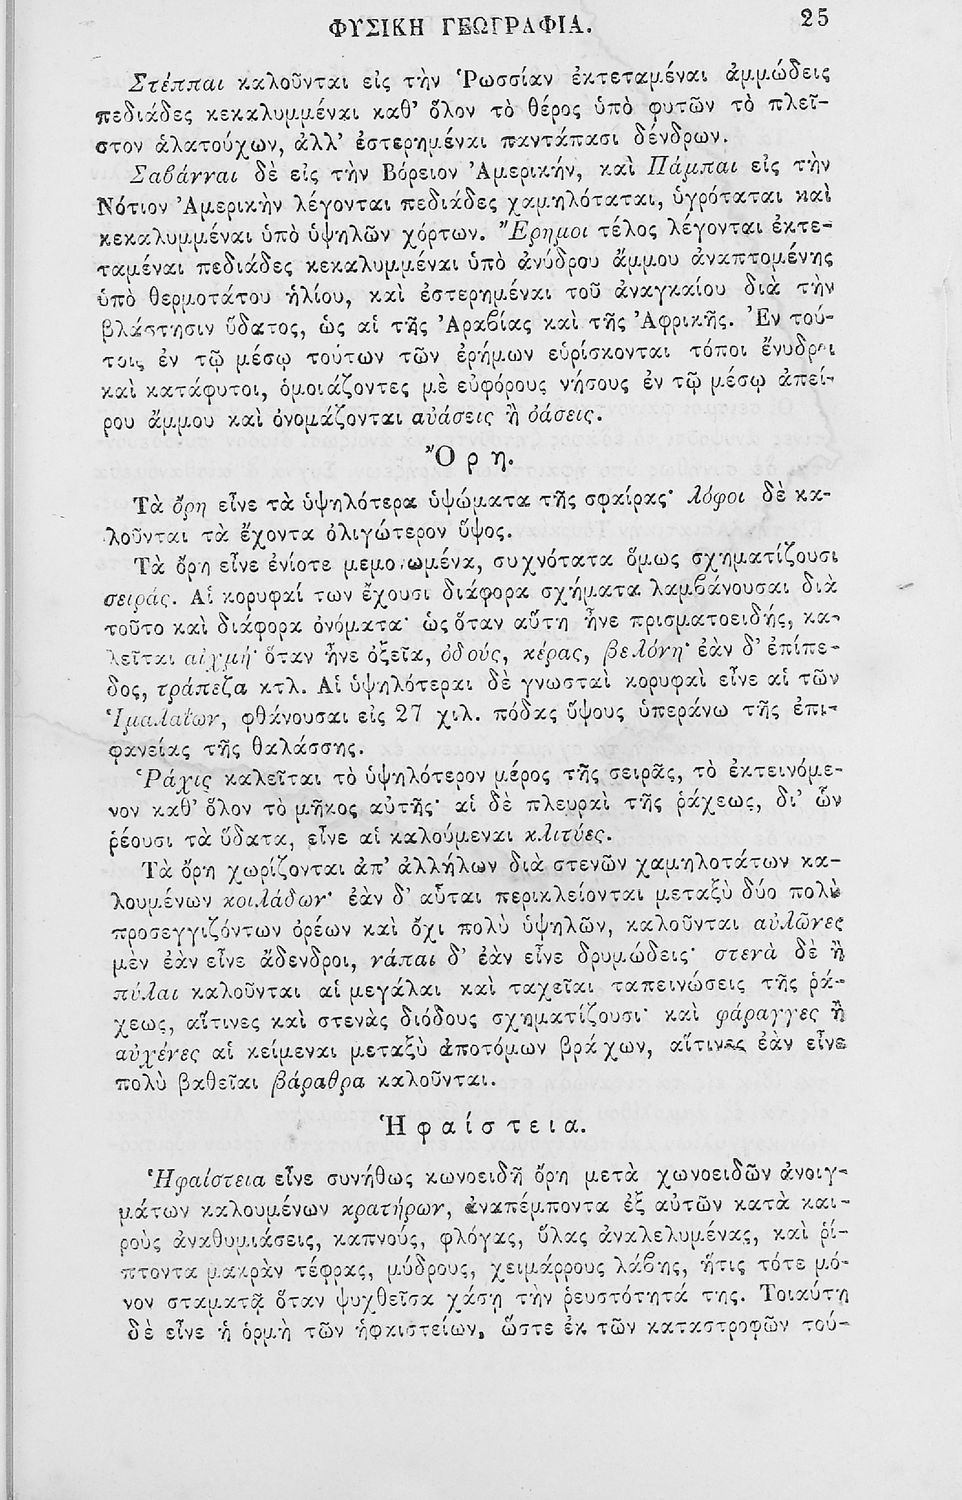 ΦΥΣΙΚΗ ΓΕΩΓΡΑΦΙΑ. 25
Στέππαι καλοῦνται εἰς τὴν Ῥωσσίαν ἐκτεταμέναι ἀμμώδεις
πεδιάδες κεκαλυμμέναι καθ’ ὅλον τὸ θέρος ὑπὸ φυτῶν τὸ πλεῖ-
στον ἁλατούχων, ἀλλ’ ἐστερημέναι παντάπασι δένδρων.
Σαβάνναι δὲ εἰς τὴν Βόρειον Ἀμερικήν, καὶ Πάμπαι εἰς τὴν
Νότιον Ἀμερικὴν λέγονται πεδιάδες χαμηλόταται, ὑγρόταται καὶ
κεκαλυμμέναι ὑπὸ ὑψηλῶν χόρτων. Ἔρημοι τέλος λέγονται ἐκτε-
ταμέναι πεδιάδες κεκαλυμμέναι ὑπὸ ἀνύδρου ἄμμου ἀναπτομένης
ὑπὸ θερμοτάτου ἡλίου, καὶ ἐστερημέναι τοῦ ἀναγκαίου διὰ τὴν
βλάστησιν ὕδατος, ὡς αἱ τῆς Ἀραβίας καὶ τῆς Ἀφρικῆς. Ἐν τού-
τοις ἐν τῷ μέσῳ τούτων τῶν ἐρήμων εὑρίσκονται τόποι ἔνυδροι
καὶ κατάφυτοι, ὁμοιάζοντες μὲ εὐφόρους νήσους ἐν τῷ μέσῳ ἀπεί-
ρου ἄμμου καὶ ὀνομάζονται αὐάσεις ἢ ὀάσεις.
Ὄρη.
Τὰ ὄρη εἶνε τὰ ὑψηλότερα ὑψώματα τῆς σφαίρας· λόφοι δὲ κα-
λοῦνται τὰ ἔχοντα ὀλιγώτερον ὕψος.
Τὰ ὄρη εἶνε ἐνίοτε μεμονωμένα, συχνότατα ὅμως σχηματίζουσι
σειράς. Αἱ κορυφαί των ἔχουσι διάφορα σχήματα λαμβάνουσαι διὰ
τοῦτο καὶ διάφορα ὀνόματα· ὡς ὅταν αὕτη ἦνε πρισματοειδής, κα-
λεῖται αἰχμή· ὅταν ἦνε ὀξεῖα, ὀδούς, κέρας, βελόνη· ἐὰν δ’ ἐπίπε-
δος, τράπεζα κτλ. Αἱ ὑψηλότεραι δὲ γνωσταὶ κορυφαὶ εἶνε αἱ τῶν
Ἱμαλαΐων, φθάνουσαι εἰς 27 χιλ. πόδας ὕψους ὑπεράνω τῆς ἐπι-
φανείας τῆς θαλάσσης.
Ῥάχις καλεῖται τὸ ὑψηλότερον μέρος τῆς σειρᾶς, τὸ ἐκτεινόμε-
νον καθ’ ὅλον τὸ μῆκος αὐτῆς· αἱ δὲ πλευραὶ τῆς ῥάχεως, δι’ ὧν
ῥέουσι τὰ ὕδατα, εἶνε αἱ καλούμεναι κλιτύες.
Τὰ ὄρη χωρίζονται ἀπ’ ἀλλήλων διὰ στενῶν χαμηλοτάτων κα-
λουμένων κοιλάδων· ἐὰν δ’ αὗται περικλείονται μεταξὺ δύο πολὺ
προσεγγιζόντων ὀρέων καὶ ὄχι πολὺ ὑψηλῶν, καλοῦνται αὐλῶνες
μὲν ἐὰν εἶνε ἄδενδροι, νάπαι δ’ ἐὰν εἶνε δρυμώδεις· στενὰ δὲ ἢ
πύλαι καλοῦνται αἱ μεγάλαι καὶ ταχεῖαι ταπεινώσεις τῆς ῥά-
χεως, αἵτινες καὶ στενὰς διόδους σχηματίζουσι· καὶ φάραγγες ἢ
αὐχένες αἱ κείμεναι μεταξὺ ἀποτόμων βράχων, αἵτινες ἐὰν εἶνε
πολὺ βαθεῖαι βάραθρα καλοῦνται.
Ἡφαίστεια.
Ἡφαίστεια εἶνε συνήθως κωνοειδῆ ὄρη μετὰ χωνοειδῶν ἀνοιγ-
μάτων καλουμένων κρατήρων, ἀναπέμποντα ἐξ αὐτῶν κατὰ και-
ροὺς ἀναθυμιάσεις, καπνούς, φλόγας, ὕλας ἀναλελυμένας, καὶ ῥί-
πτοντα μακρὰν τέφρας, μύδρους, χειμάρρους λάβης, ἥτις τότε μό-
νον σταματᾷ ὅταν ψυχθεῖσα χάσῃ τὴν ῥευστότητά της. Τοιαύτη
δὲ εἶνε ἡ ὁρμὴ τῶν ἡφαιστείων, ὥστε ἐκ τῶν καταστροφῶν τού-